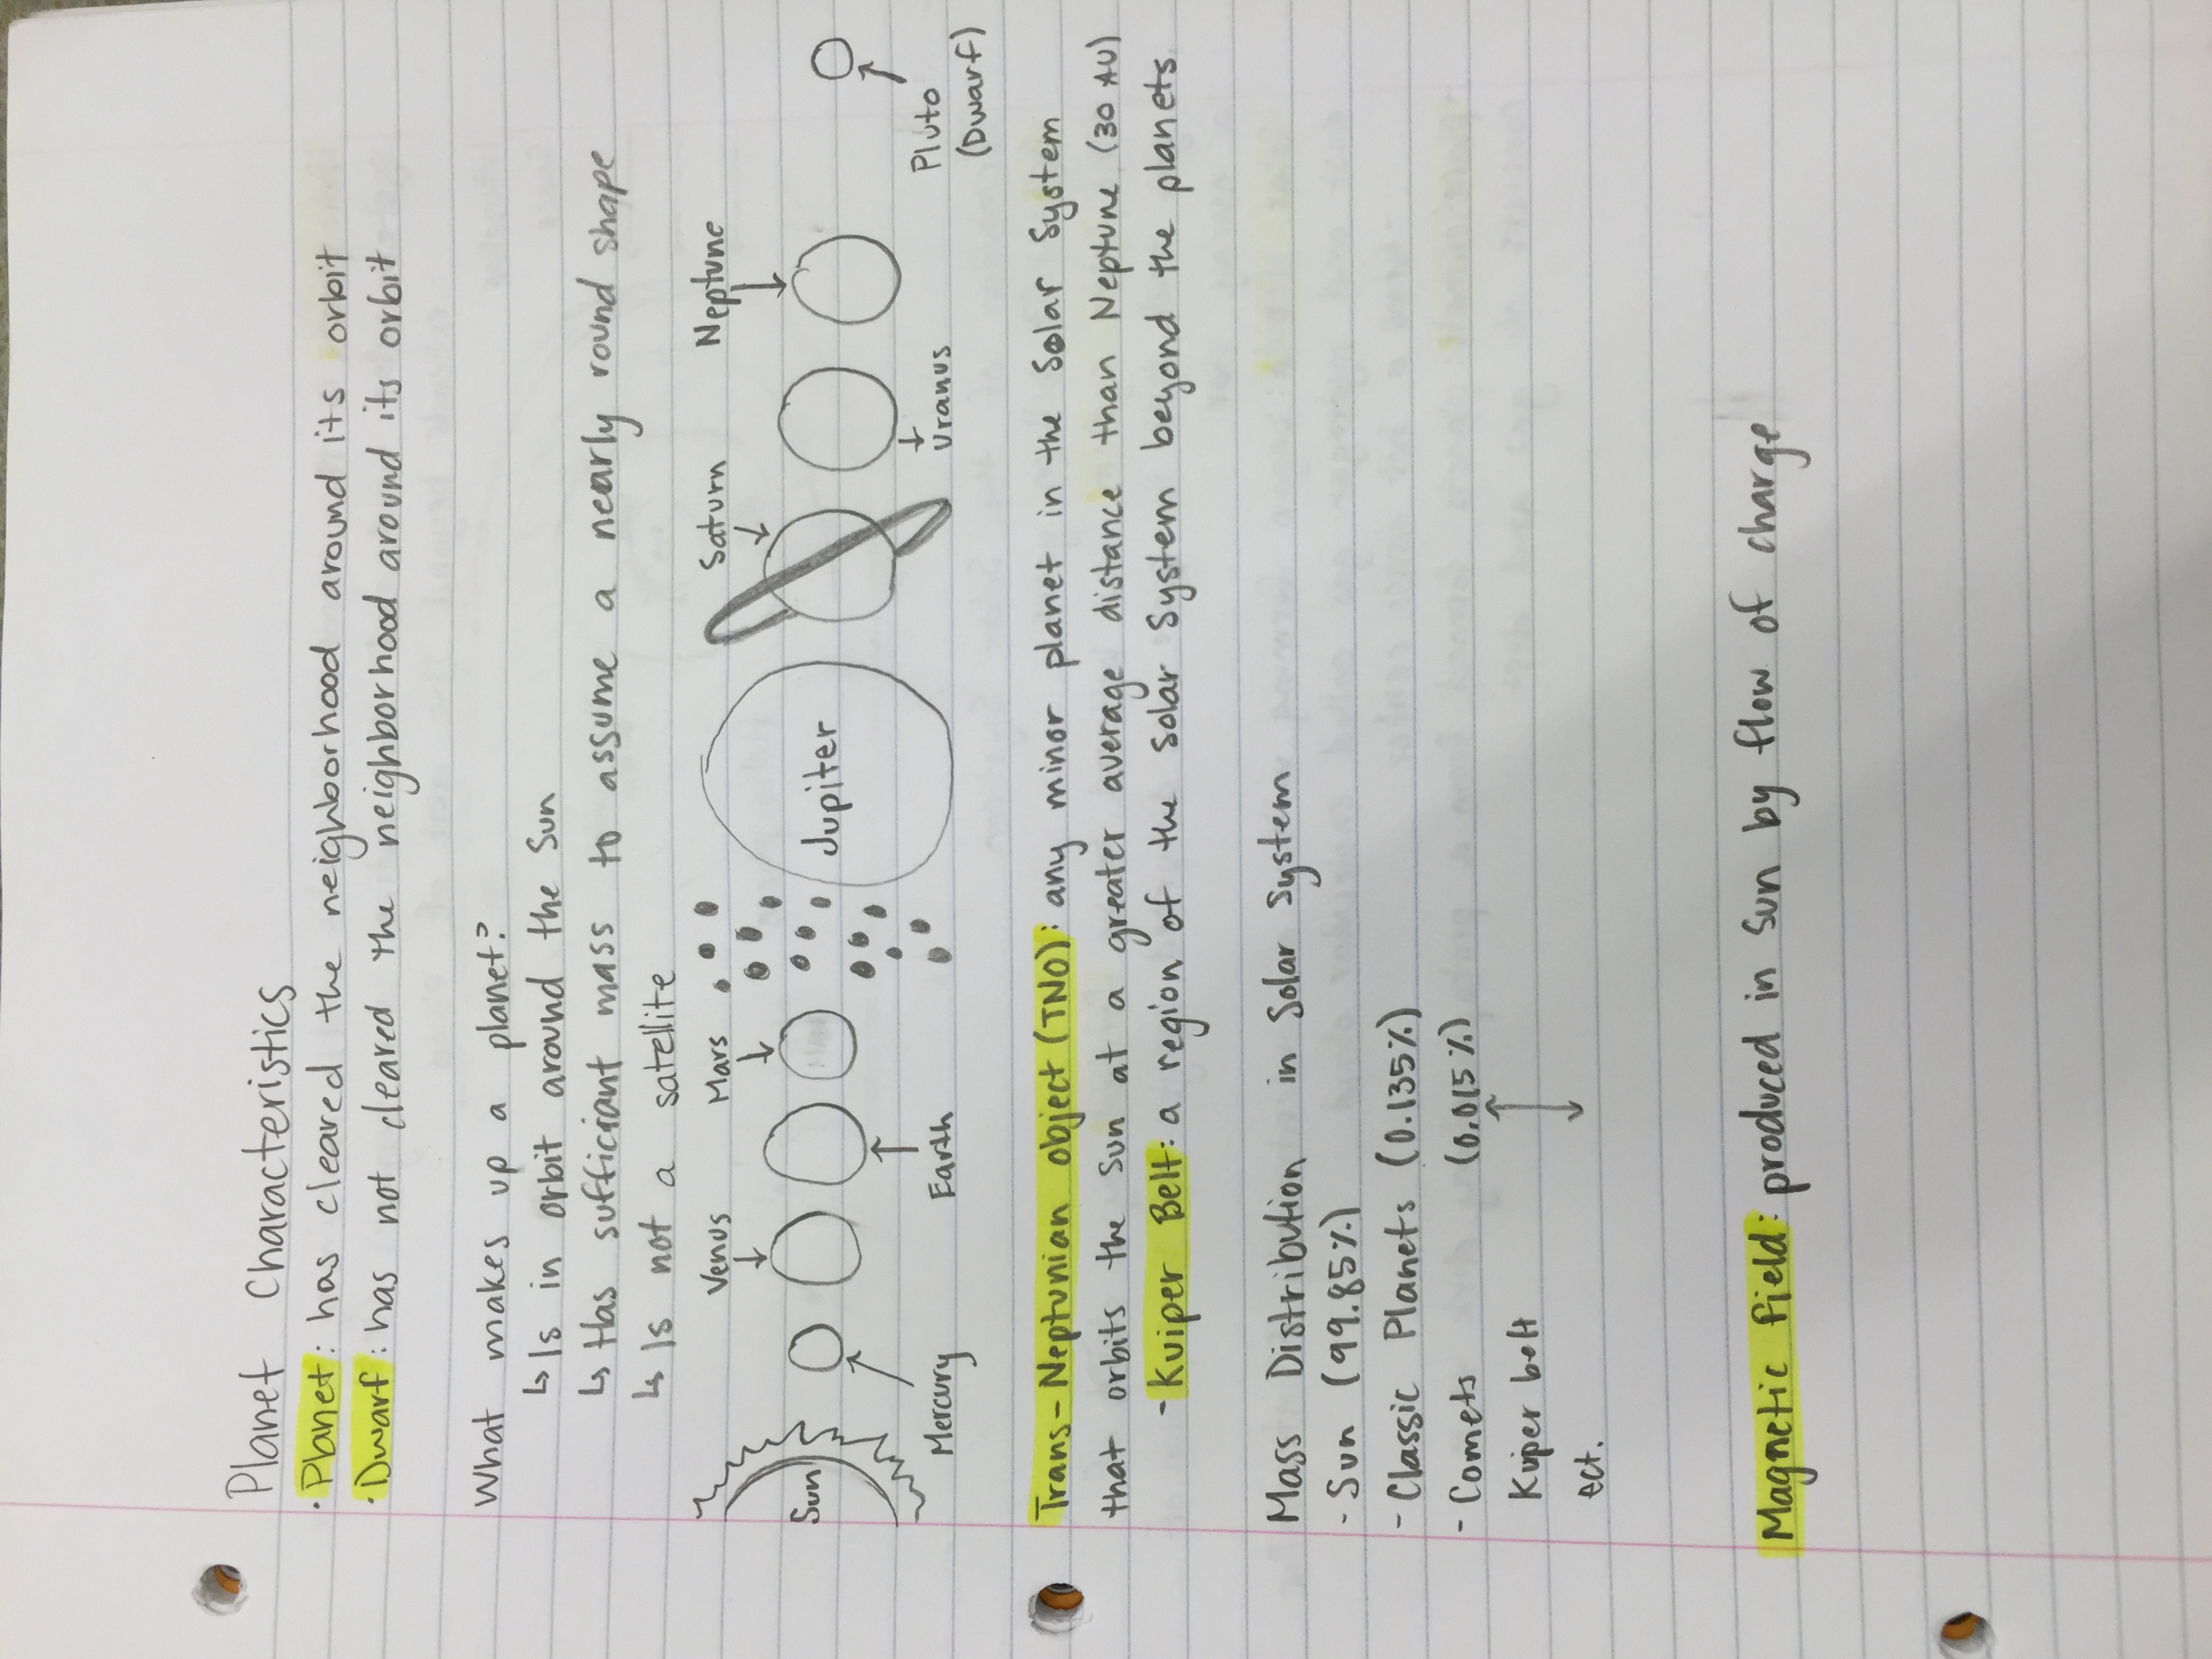 Planet Characteristics
· Planet: has cleared the neighborhood around its orbit
· Dwarf: has not cleared the neighborhood around its orbit
What makes up a planet?
↳ Is in orbit around the Sun
↳ Has sufficiant mass to assume a nearly round shape
↳ Is not a satellite
Venus Mars Saturn Neptune
Sun Jupiter
Mercury Earth Uranus Pluto
(Dwarf)
Trans-Neptunian object (TNO): any minor planet in the Solar System
that orbits the Sun at a greater average distance than Neptune (30 AU)
- Kuiper Belt: a region of the Solar System beyond the planets
Mass Distribution in Solar System
- Sun (99.85%)
- Classic Planets (0.135%)
- Comets (0.015%)
Kuiper belt
ect.
Magnetic field: produced in Sun by flow of charge